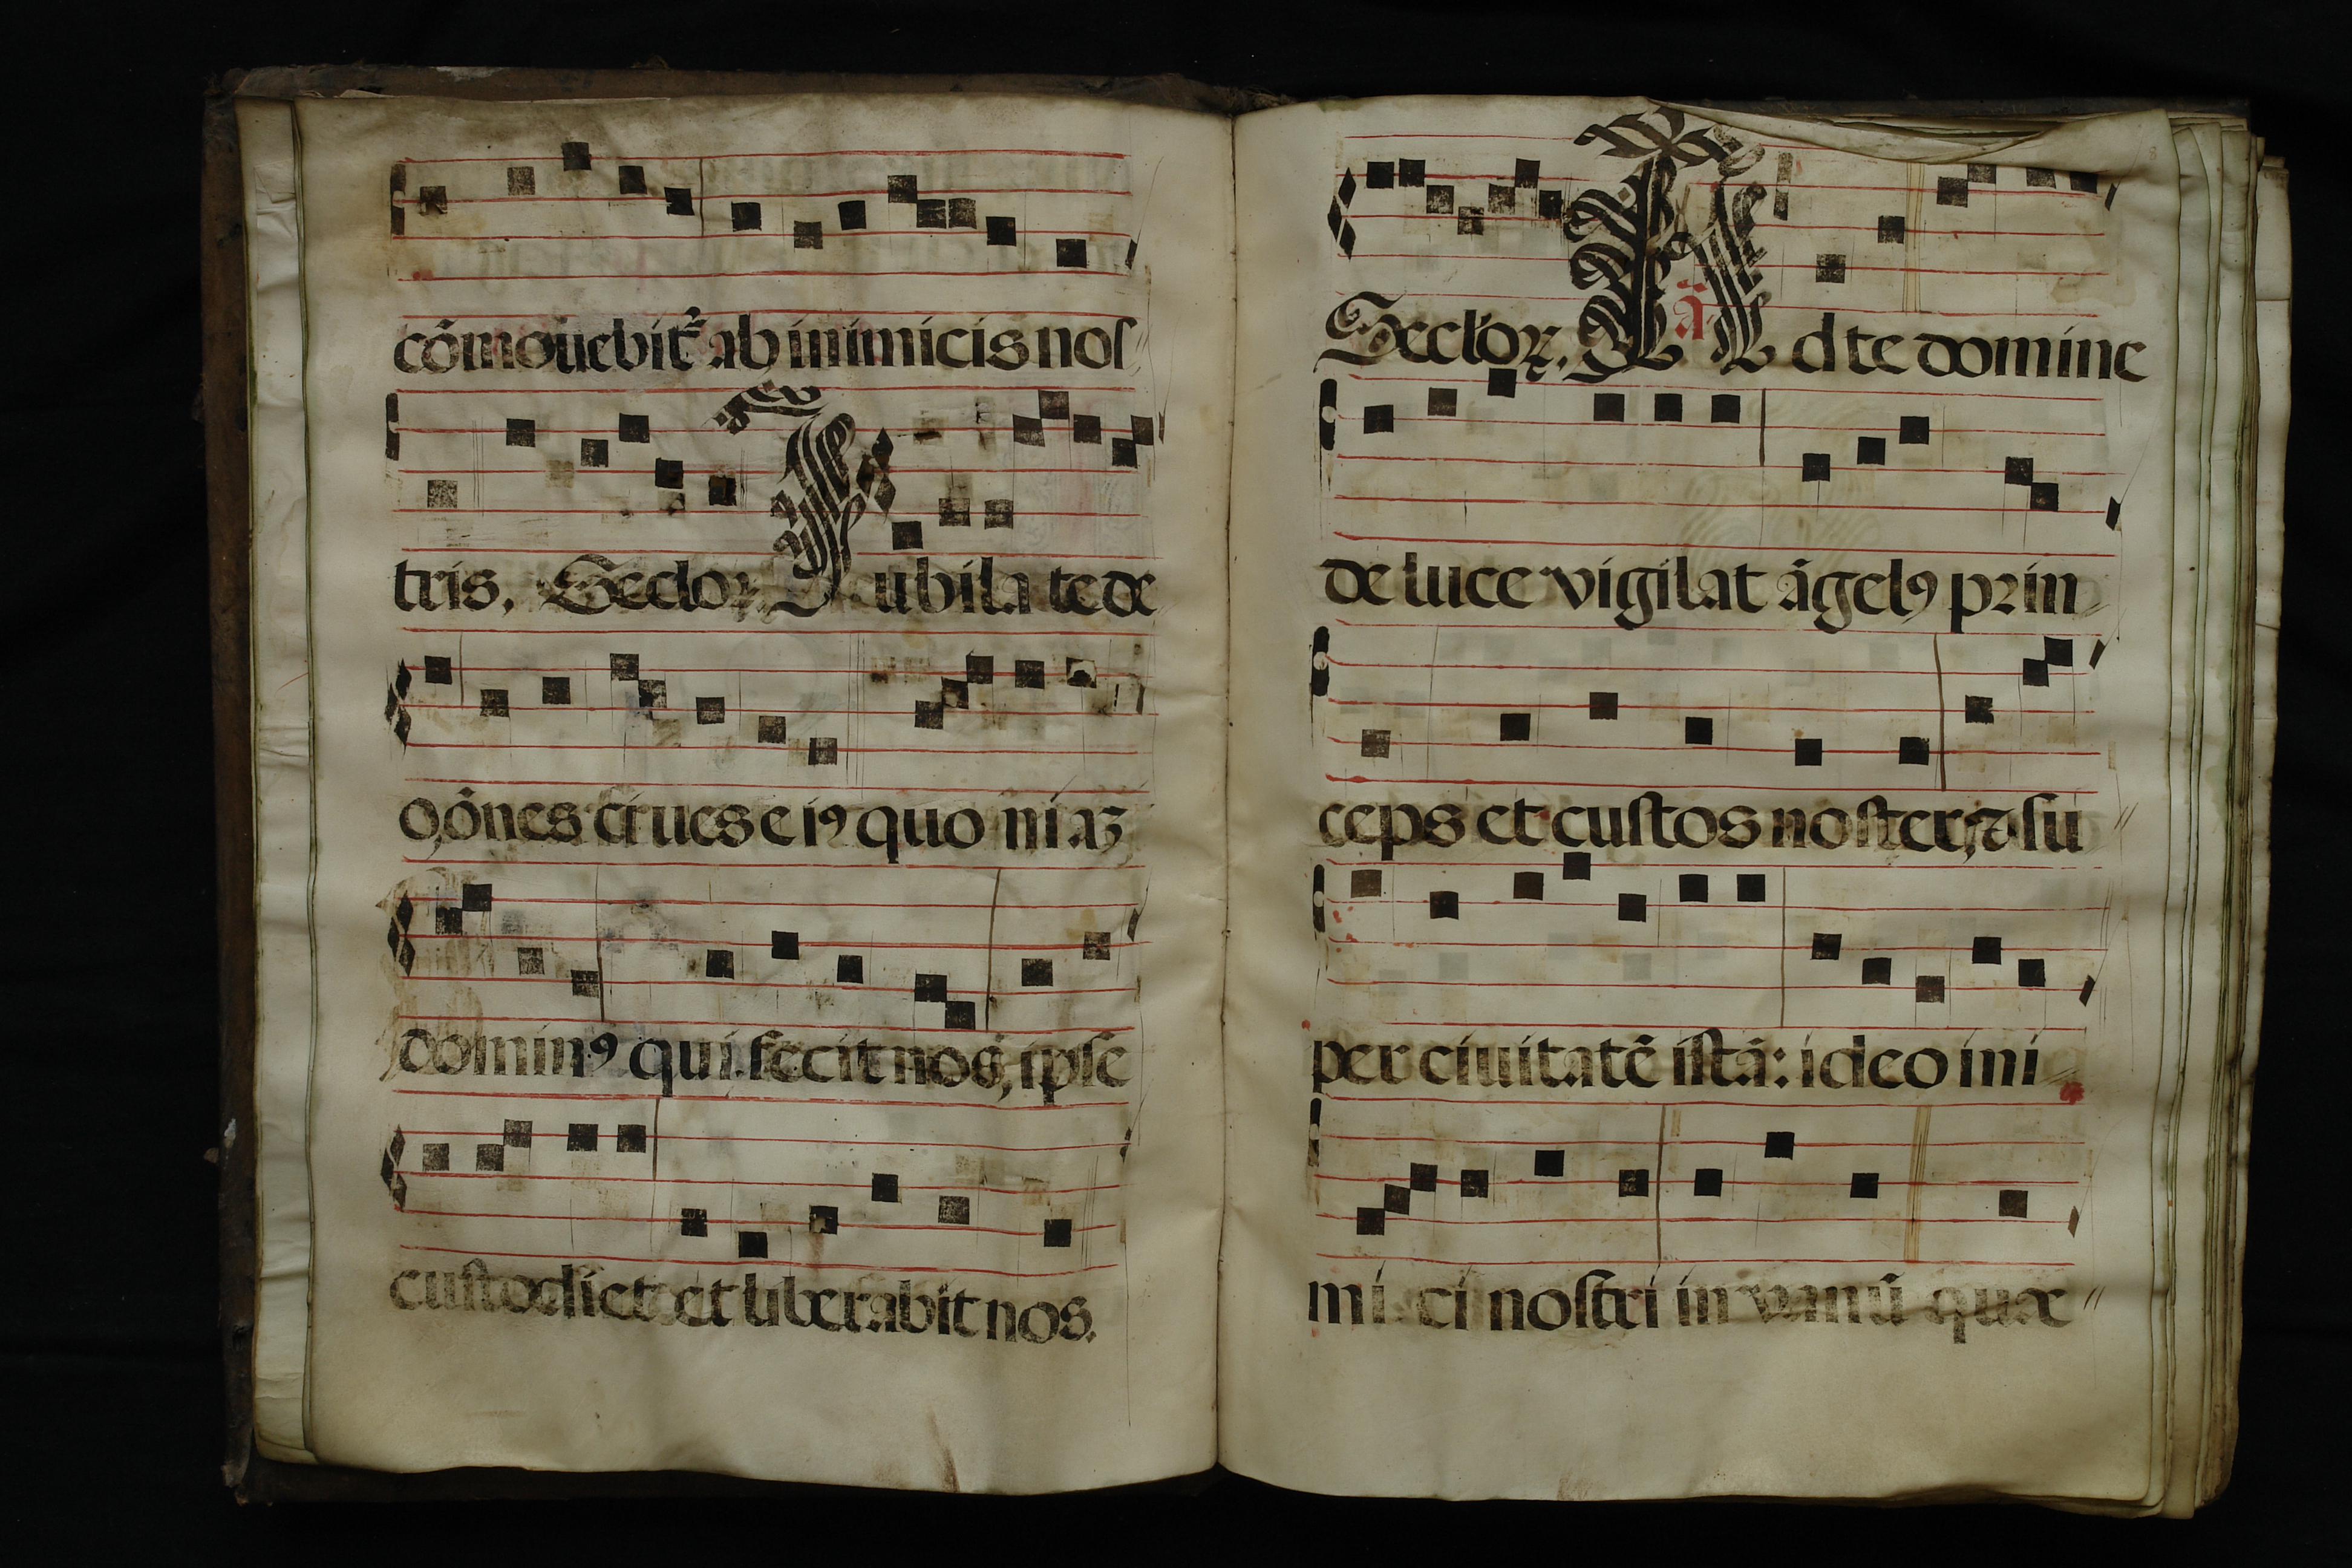 cōmouebit᷑ ab inimicis nos
tris. Seclor. Iubilate de
o, ōnes ciues eiꝰ quoniaꝫ
dominꝰ qui fecit nos, ipse
custodiet et liberabit nos.
Seclor. ā A d te domine
de luce vigilat āgelꝰ prin
ceps et custos noster, ⁊ su
per ciuitatē istā: ideo ini
mici nostri in vanū quæ